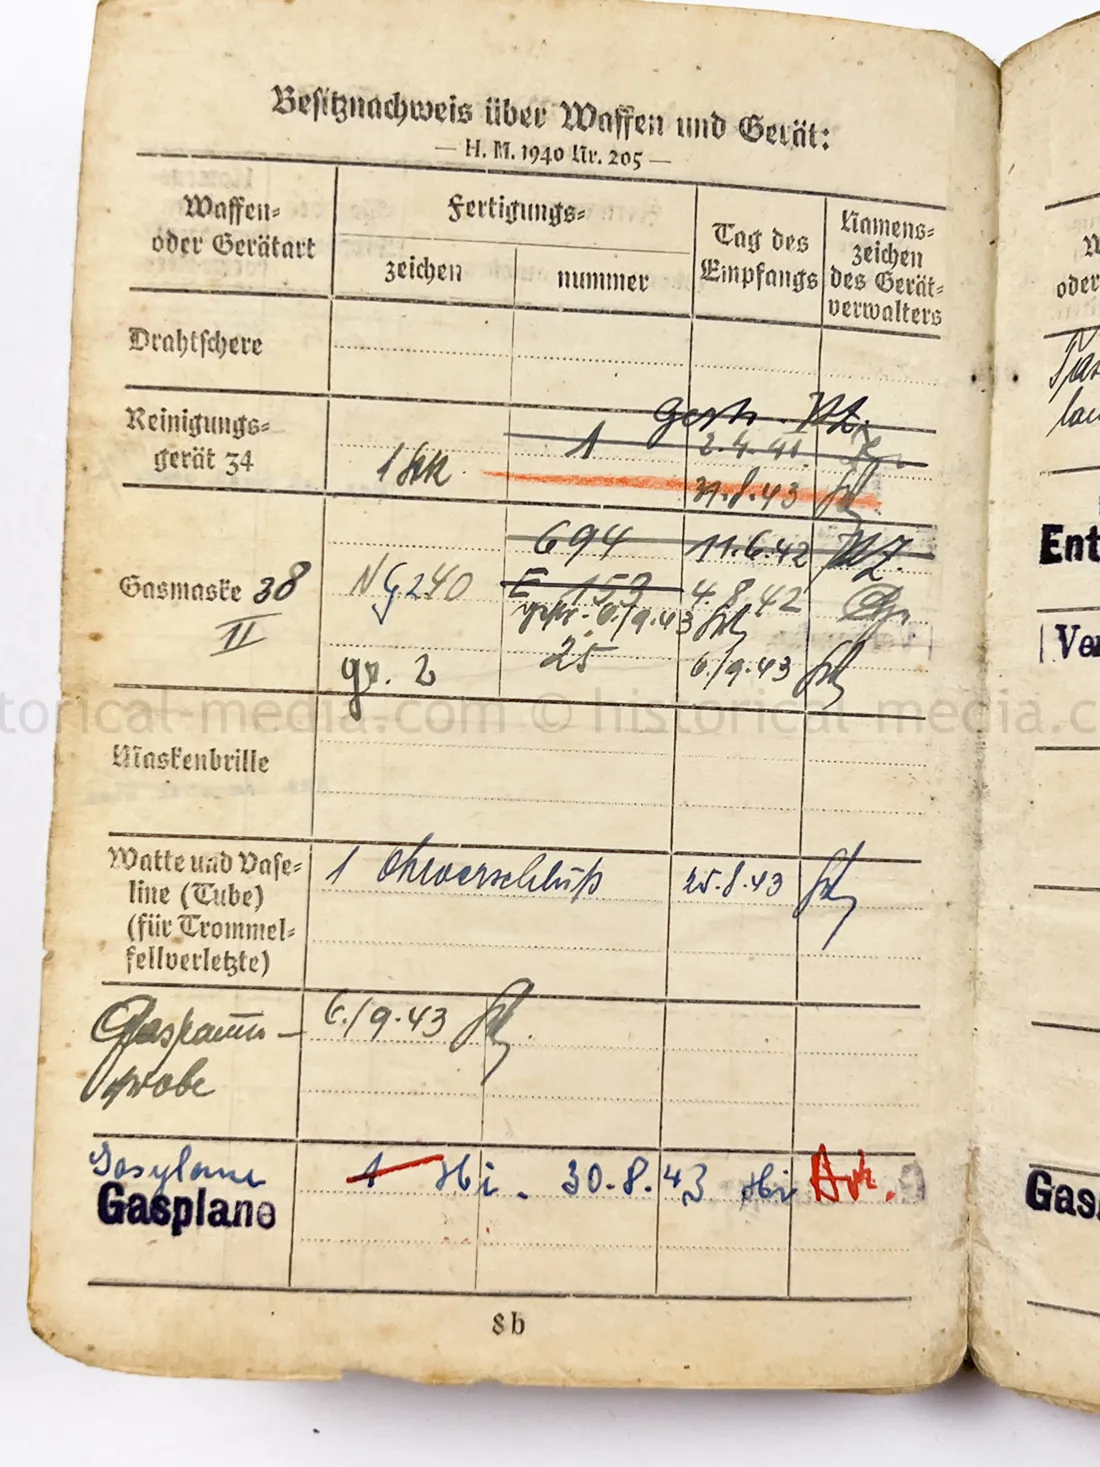 Besitznachweis über Waffen und Gerät:
— H. M. 1940 Nr. 205 —
Waffen-
oder Gerätart
Fertigungs-
zeichen
nummer
Tag des
Empfangs
Namens-
zeichen
des Gerät-
verwalters
Drahtschere
Reinigungs-
gerät 34
gestr.
1
2.4.41
1 Stk
31.8.43
Gasmaske 38
II
694
11.6.42
N G 240
E 153
4.8.42
gestr. 6/9.43
gr. 2
25
6/9.43
torical-media.com © historical-media.c
Maskenbrille
Watte und Vase-
line (Tube)
(für Trommel-
fellverletzte)
1 Ohrverschluß
25.8.43
Gasspann-
probe
6/9.43
Gasplane
Gasplane
1 Hi. 30.8.43 Hi
8b
W
oder
Ent
Ver
Gas